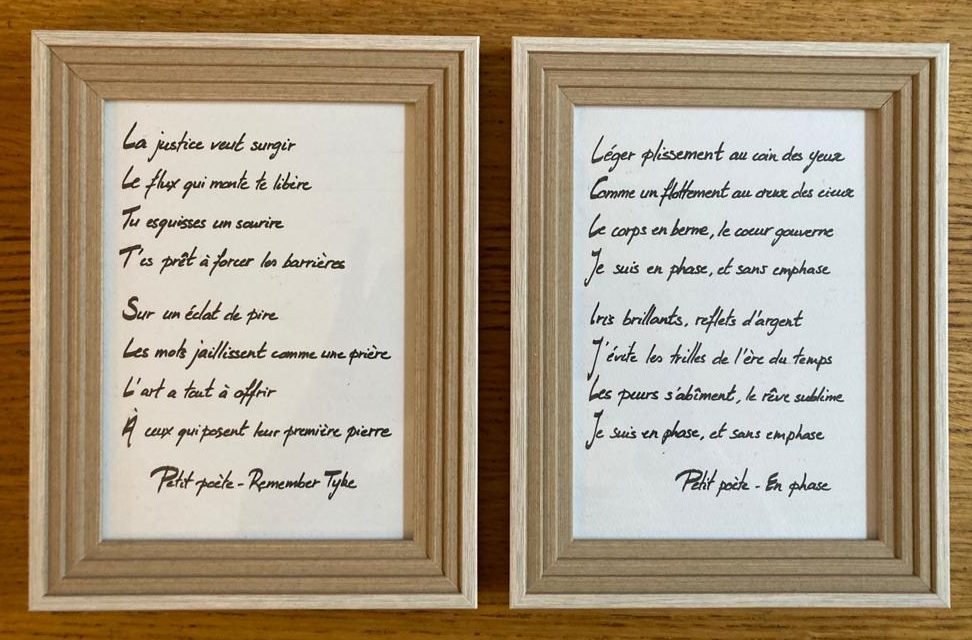 La justice veut surgir
Le flux qui monte te libère
Tu esquisses un sourire
T'es prêt à forcer les barrières
Sur un éclat de pire
Les mots jaillissent comme une prière
L'art a tout à offrir
À ceux qui posent leur première pierre
Petit poète - Remember Tyke
Léger plissement au coin des yeux
Comme un flottement au creux des cieux
Le corps en berne, le coeur gouverne
Je suis en phase, et sans emphase
Iris brillants, reflets d'argent
J'évite les trilles de l'ère du temps
Les peurs s'abîment, le rêve sublime
Je suis en phase, et sans emphase
Petit poète - En phase